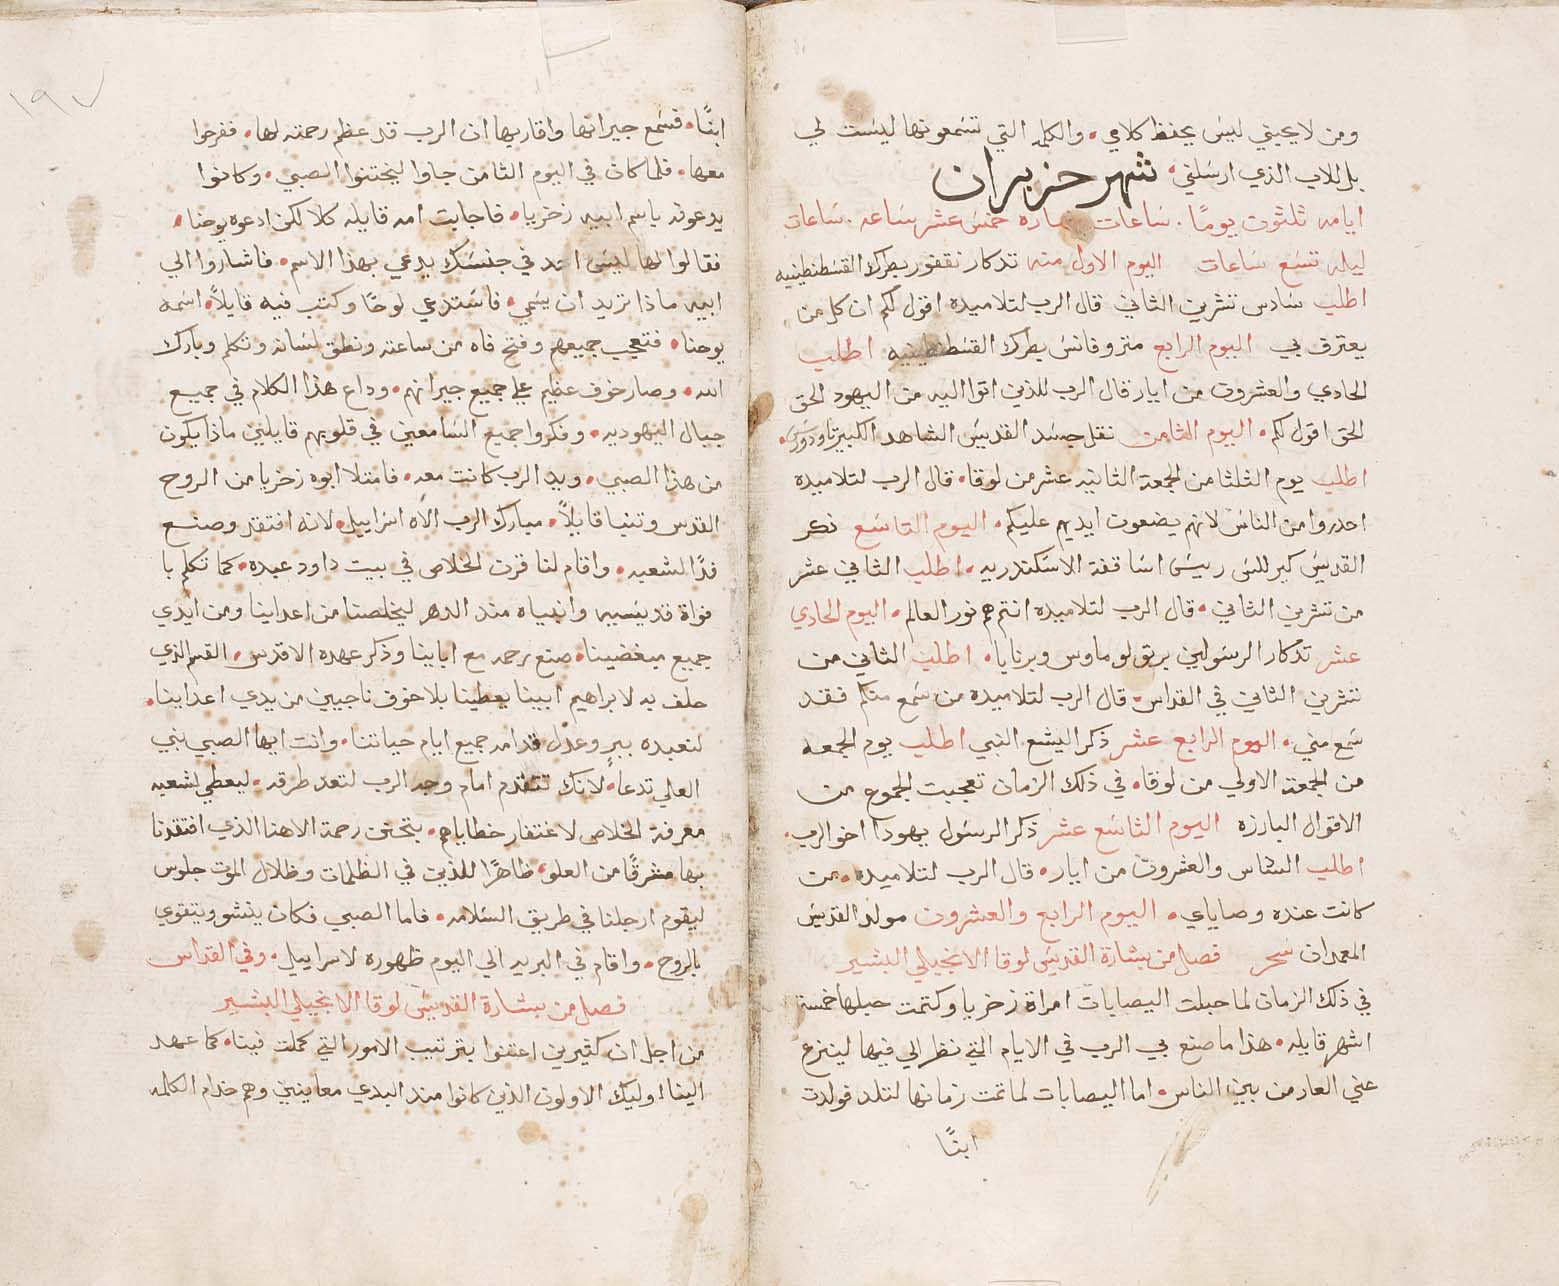 ومن لا يحبني ليس يحفظ كلامي • والكلمه التي تسمعونها ليست لي
بل للاب الذي ارسلني • شهر حزيران
ايامه ثلثون يومًا . ساعات نهاره خمس عشر ساعه . ساعات
ليله تسع ساعات اليوم الاول منه تدكار نقفور بطرك القسطنطينيه
اطلب سادس تشرين الثاني قال الرب لتلاميده اقول لكم ان كل من
يعترف بي اليوم الرابع متروفانس بطرك القسطنطينيه اطلب
الحادي والعشرون من ايار قال الرب للذين اتوا اليه من اليهود الحق
الحق اقول لكم • اليوم الثامن نقل جسد القديس الشاهد الكبير تاودورس •
اطلب يوم الثلثا من الجمعة الثانيه عشر من لوقا • قال الرب لتلاميده
احدروا من الناس لانهم يضعون ايديهم عليكم • اليوم التاسع ذكر
القديس كيرللس رييس اساقفة الاسكندريه • اطلب الثاني عشر
من تشرين الثاني • قال الرب لتلاميده انتم هم نور العالم • اليوم الحادي
عشر تدكار الرسولين برتولوماوس وبرنابا • اطلب الثاني من
تشرين الثاني في القداس • قال الرب لتلاميده من سمع منكم فقد
سمع مني • اليوم الرابع عشر ذكر اليشع النبي اطلب يوم الجمعه
من الجمعة الاولي من لوقا • في ذلك الزمان تعجبت الجموع من
الاقوال البارزه اليوم التاسع عشر ذكر الرسول يهودا اخو الرب •
اطلب والعشرون من ايار • قال الرب لتلاميده • من
كانت عنده وصاياي • اليوم الرابع والعشرون مولد القديس
المعمدان سحر فصل من بشارة القديس لوقا الانجيلي البشير
في ذلك الزمان لما حبلت اليصابات امراة زخريا وكتمت حبلها خمسة
اشهر قايله • هذا ما صنع بي الرب في الايام التي نظر الي فيها لينزع
عني العار من بين الناس • اما اليصابات لما تمت زمانها لتلد فولدت
ابنًا
١٩٧
ابنًا • فسمع جيرانها واقاربها ان الرب قد عظم رحمته لها • ففرحوا
معها • فلما كان في اليوم الثامن جاوا ليختنوا الصبي • وكانوا
يدعونه باسم ابيه زخريا • فاجابت امه قايله كلا لكن ادعوه يوحنا •
فقالوا لها ليس احد في جنسك يدعي بهذا الاسم • فاشاروا الي
ابيه ماذا تريد ان يسمي • فاستدعي لوحًا وكتب فيه قايلاً • اسمه
يوحنا • فتعجب جميعهم وفتح فاه من ساعته ونطق لسانه وتكلم وبارك
الله • وصار خوف عظيم علي جميع جيرانهم • وداع هذا الكلام في جميع
جبال اليهوديه • وفكروا جميع السامعين في قلوبهم قايلين ماذا يكون
من هذا الصبي • ويد الرب كانت معه • فامتلا ابوه زخريا من الروح
القدس وتنبا قايلاً • مبارك الرب الاه اسراييل • لانه افتقد وصنع
فدًا لشعبه • واقام لنا قرن الخلاص في بيت داود عبده • كما تكلم با
فواة قديسيه وانبياه مند الدهر ليخلصنا من اعداينا ومن ايدي
جميع مبغضينا • صنع رحمه مع اباينا وذكر عهده الاقدس • القسم الذي
حلف به لابراهيم ابينا يعطينا بلا خوف ناجيين من يدي اعداينا •
لنعبده ببرٍ وعدل قدامه جميع ايام حياتنا • وانت ايها الصبي نبي
العالي تدعا • لانك تتقدم امام وجه الرب لتعد طرقه • ليعطي لشعبه
معرفة الخلاص لاغتفار خطاياهم • بتحنن رحمة الاهنا الذي افتقدنا
بها مشرقًا من العلو • ظاهرًا للذين في الظلمات وظلال الموت جلوس
ليقوم ارجلنا في طريق السلامه • فاما الصبي فكان ينشو ويتقوي
بالروح • واقام في البريه الي اليوم ظهوره لاسراييل • وفي القداس
فصل من بشارة القديس لوقا الانجيلي البشير
من اجل ان كثيرين اعتنوا بترتيب الامور التي كملت فينا • كما عهد
الينا اوليك الاولون الذين كانوا مند البدي معاينين وهم خدام الكلمه